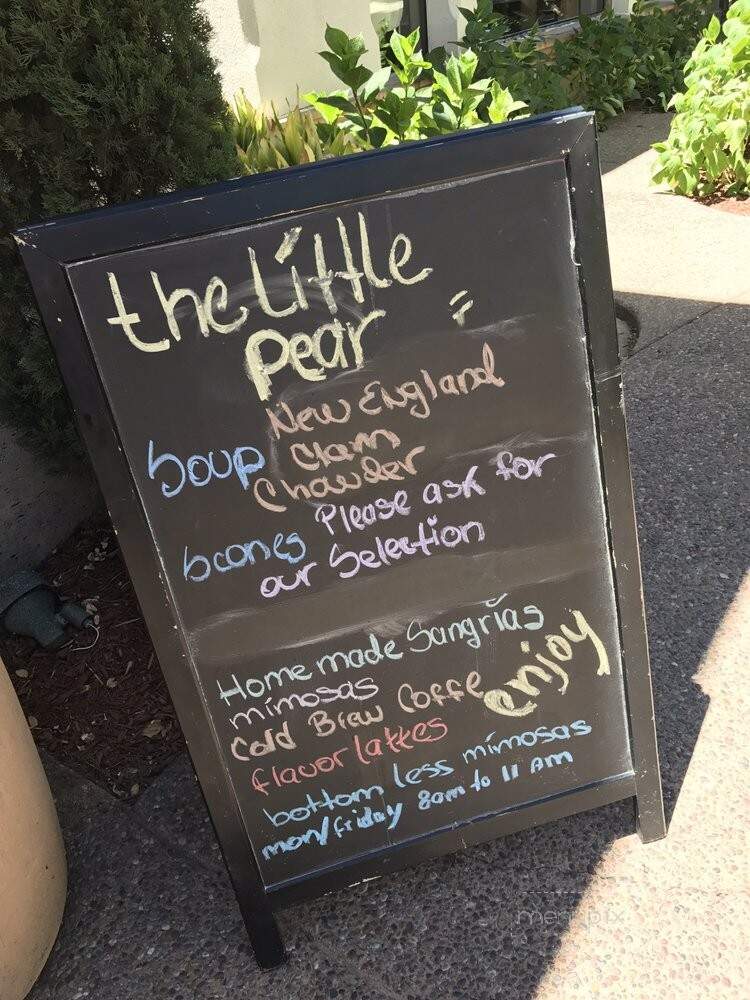 the Little
pear =
New England
Soup Clam
Chowder
Scones Please ask for
our Selection
Home made Sangrias
mimosas
Cold Brew Coffe
enjoy
flavor lattes
bottom less mimosas
mon/friday 8am to 11 Am
menupix